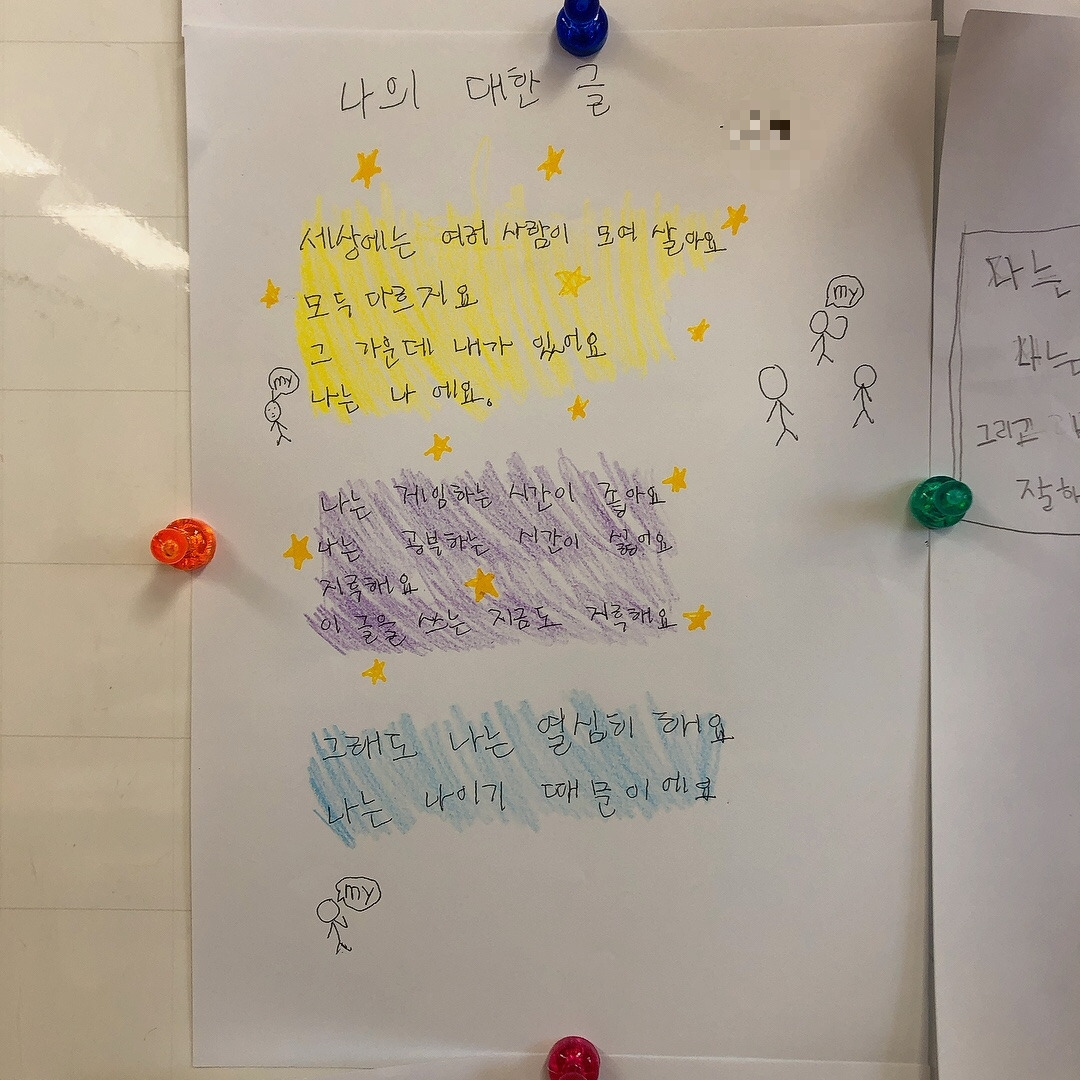 나의 대한 글
세상에는 여러 사람이 모여 살아요
모두 다르지요
그 가운데 내가 있어요
나는 나 에요.
my
my
나는 게임하는 시간이 좋아요
나는 공부하는 시간이 싫어요
지루해요
이 글을 쓰는 지금도 지루해요
그래도 나는 열심히 해요
나는 나이기 때문이에요
my
나는
나는
그리고
잘해